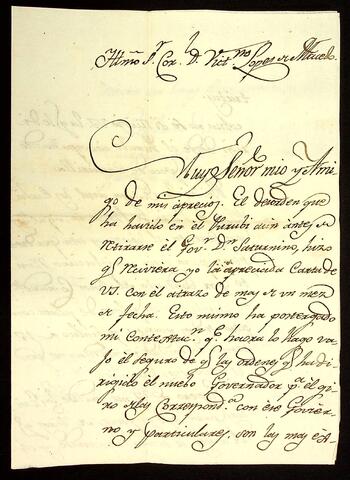 Illmo Sr. Corl. D. Victno Lopes de Macedo.
Muy Señor mio y Ami-
go de mi aprecio: El desorden que
ha havido en el Yurubi aun antes de
retirarse el Govr. Dn Saturnino, hizo
qe. reciviera yo la apreciada Carta de
VS. con el atrazo de mas de un mez
de fecha. Esto mismo ha postergado
mi Contestac.n qe. haora lo hago va-
jo el seguro de qe. las ordenes qe. ha di-
rigido el nuebo Governador pa. el gi-
ro de las Correspond.a con ese Govier-
no y particulares, son las mas